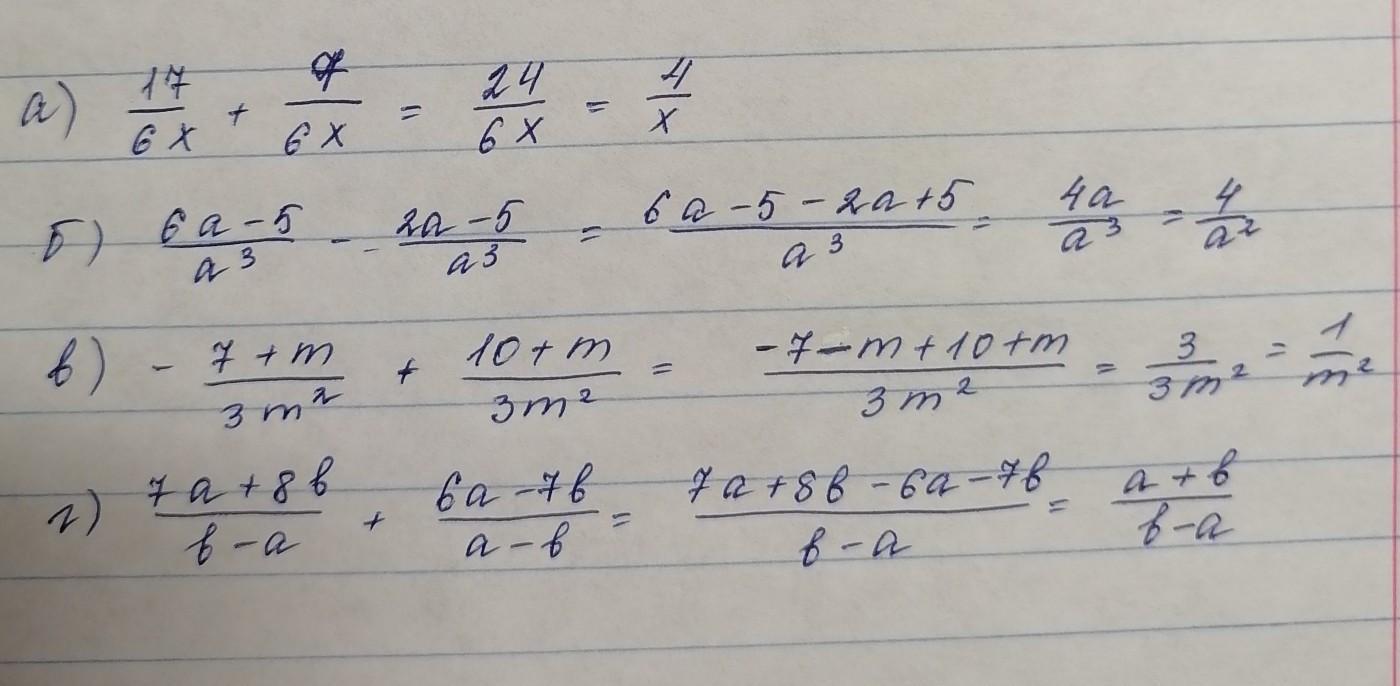 а) 17/6x + 7/6x = 24/6x = 4/x
б) (6a-5)/a³ - (2a-5)/a³ = (6a-5-2a+5)/a³ = 4a/a³ = 4/a²
в) - (7+m)/3m² + (10+m)/3m² = (-7-m+10+m)/3m² = 3/3m² = 1/m²
г) (7a+8b)/(b-a) + (6a-7b)/(a-b) = (7a+8b-6a-7b)/(b-a) = (a+b)/(b-a)